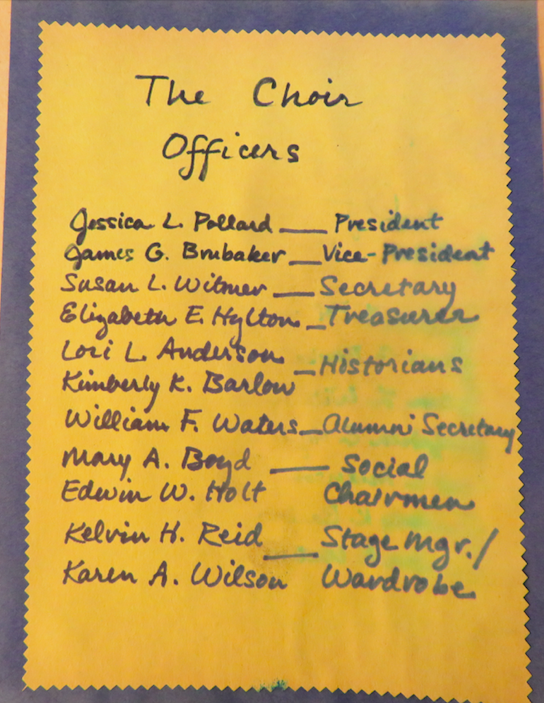 The Choir
Officers
Jessica L. Pollard — President
James G. Brubaker — Vice-President
Susan L. Witmer — Secretary
Elizabeth E. Hylton — Treasurer
Lori L. Anderson
— Historians
Kimberly K. Barlow
William F. Waters — Alumni Secretary
Mary A. Boyd — Social
Edwin W. Holt Chairmen
Kelvin H. Reid — Stage Mgr./
Karen A. Wilson Wardrobe